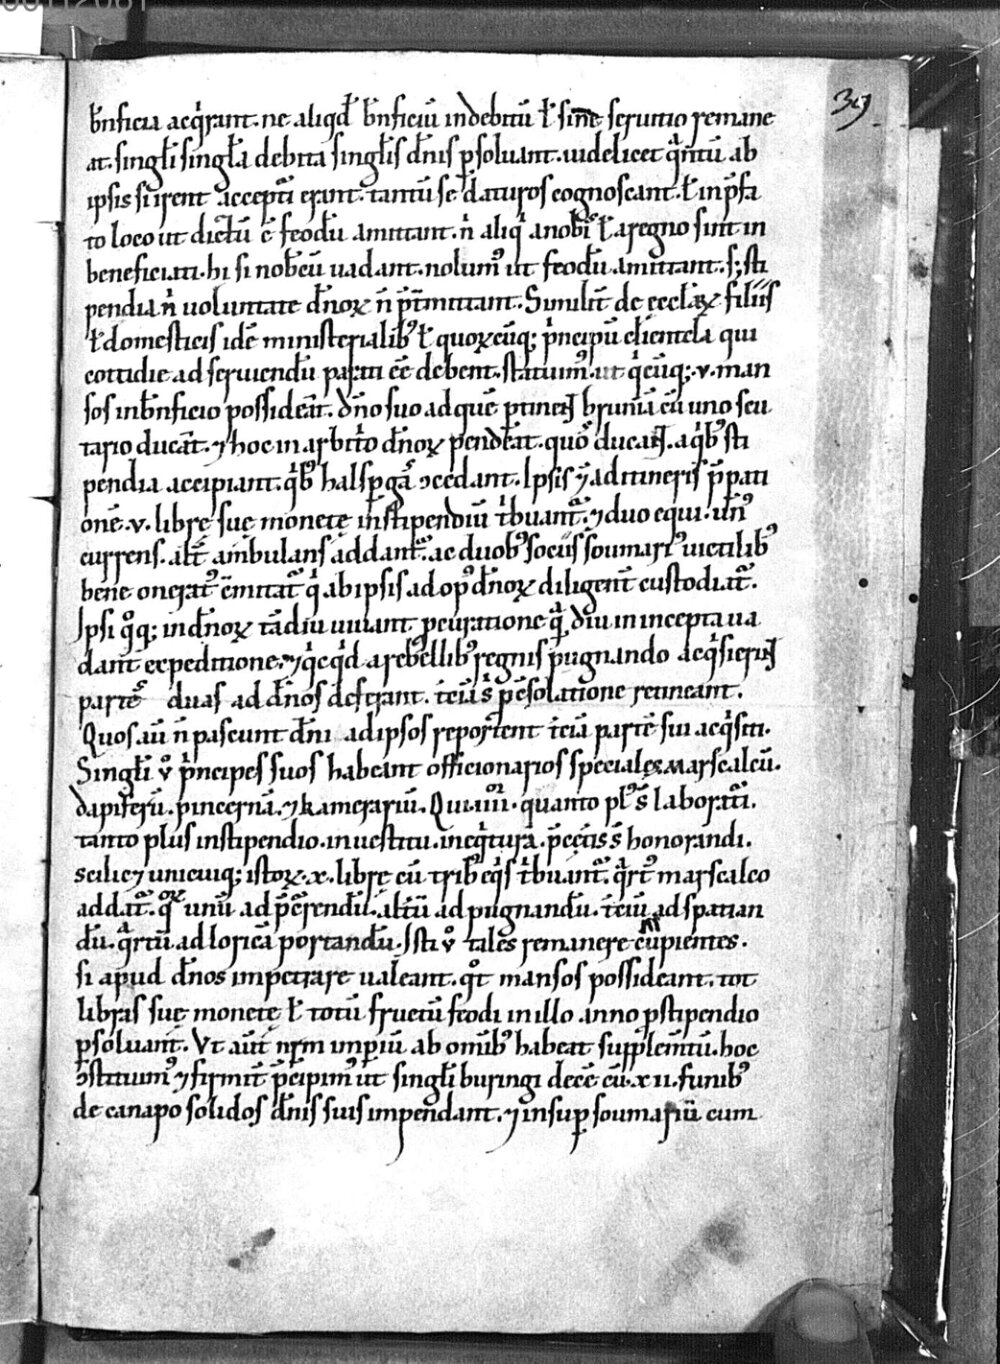 00112081
39
b̅nficia acq̍rant. ne aliqd̅ b̅nficiū indebitū ł sine seruitio remane
at. singłi singła debita singłis dn̅is ꝑsoluant. uidelicet q̍ntū ab
ipsis si irent accepti erant. tantū se daturos cognoscant. ł in p̅fa
to loco ut dictū ē feodū amittant. n̍ aliq̍ a nob̅ ł a regno sint in
beneficiati. hi si nob̅cū uadant. nolum⁹ ut feodū amittant. s; sti
pendia n̍ uoluntate dn̅oꝝ n̅ p̅t̅mittant. Similit̅ de eccła̅ꝝ filiis
ł domesticis idē ministerialib⁹ ł quoꝝcūq; p̍ncipū clientela qui
cottidie ad seruiendū parati ēē debent. statuim⁹. ut q̍cūq; .v. man
sos in b̅nficio possideāt. dn̅o suo ad quē ꝑtinent bruniā cū uno scu
tario ducāt. ⁊ hoc in arbit̍o dn̅oꝝ pendeat. quos ducant. a q̍b⁹ sti
pendia accipiant. q̍b⁹ halsꝑgas ↄcedant. Ipsis ⁊ ad itineris p̅pati
onē .v. libre̜ sue̜ monete̜ in stipendiū t̍buant᷑. ⁊ duo equi. un⁹
currens. alt̅ ambulans addant᷑. ac duob⁹ sociis soumari⁹ uictilib⁹
bene onerat⁹ ↄ̅mittat᷑ q̍ ab ipsis ad op⁹ dn̅oꝝ diligent̅ custodiat᷑.
Ipsi q°q; in dn̅oꝝ tādiu uiuant ꝓcuratione q̍ diu in incepta ua
dant expeditione. ⁊ q̍cq̍d a rebellib⁹ regnis pugnando acq̍sierint
partes duas ad dn̅os deferant. t̍ciā s̍ ꝑ ↄsolatione retineant.
Quos au̅ n̅ pascunt dn̅i ad ipsos reportent t̍ciā partē sui acq̍siti.
Singłi v° p̍ncipes suos habeant officionarios speciales. Marscalcū.
dapiferū. pincernā. ⁊ kamerariū. Qui .iiii°ʳ. quanto pl⁹ s̅ laborat̍i.
tanto plus in stipendio. in uestitu. in eq̍tura. p̅ cet̍is s̅ honorandi.
scilic⁊ unicuiq; istoꝝ .x. libre̜ cū trib⁹ eq̍s t̍buant᷑. q̍rt⁹ marscalco
addat᷑. q°ꝝ unū ad p̅c̅rrendū. altū ad pugnandū. t̍ciū ad spatian
dū. q̍rtū ad loricā portandū. Isti v° tales remanere cupientes.
si apud dn̅os impetrare ualeant. q°t mansos possideant. tot
libras sue̜ monete̜ ł totū fructū feodi in illo anno ꝓ stipendio
ꝑsoluant. Ut aut̅ nr̅m imꝑiū ab omīb⁹ habeat supplem̅tū. hoc
ↄstituim⁹ ⁊ firmit̅ p̅cipim⁹ ut singłi buringi decē cū .xii. funib⁹
de canapo solidos dn̅is suis impendant. ⁊ insuꝑ soumariū cum